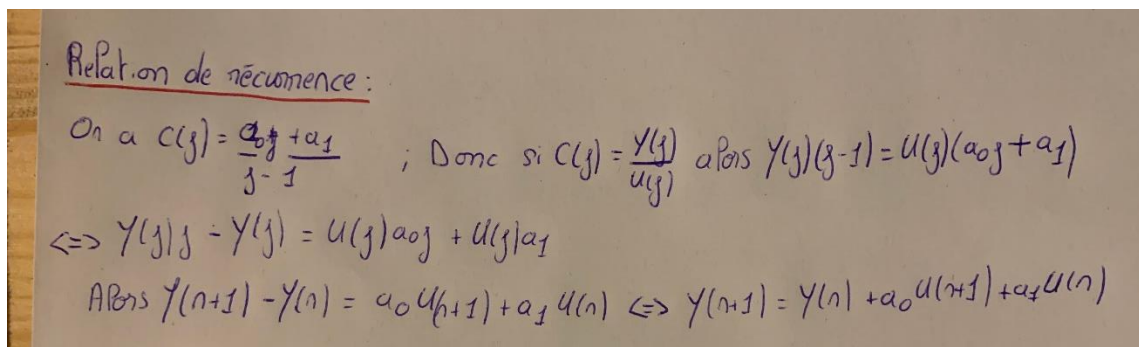 Relation de récurrence :
On a C(z) = (a0z + a1)/(z - 1) ; Donc si C(z) = Y(z)/U(z) alors Y(z)(z-1) = U(z)(a0z + a1)
<=> Y(z)z - Y(z) = U(z)a0z + U(z)a1
Alors Y(n+1) - Y(n) = a0 U(n+1) + a1 U(n) <=> Y(n+1) = Y(n) + a0 U(n+1) + a1 U(n)